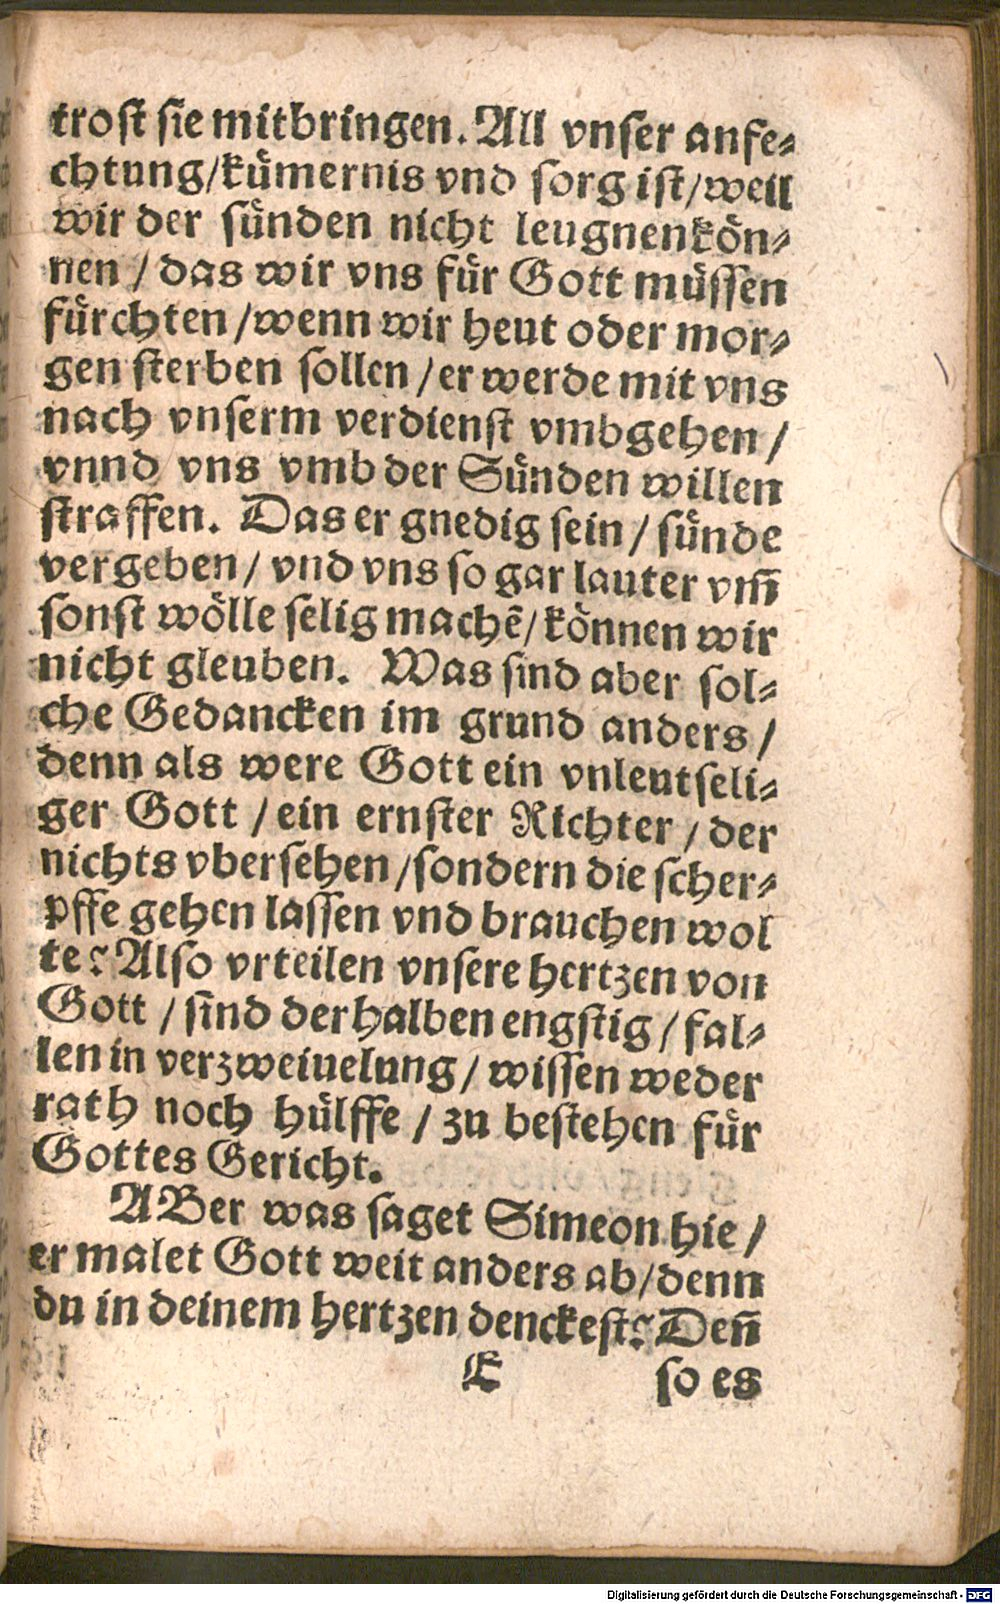 trost sie mitbringen. All vnser anfe⸗
chtung/kuͤmernis vnd sorg ist/weil
wir der suͤnden nicht leugnen koͤn⸗
nen / das wir vns fuͤr Gott muͤssen
fuͤrchten /wenn wir heut oder mor⸗
gen sterben sollen /er werde mit vns
nach vnserm verdienst vmbgehen /
vnnd vns vmb der Suͤnden willen
straffen. Das er gnedig sein / suͤnde
vergeben / vnd vns so gar lauter vm̃
sonst woͤlle selig machẽ/ koͤnnen wir
nicht gleuben. Was sind aber sol⸗
che Gedancken im grund anders /
denn als were Gott ein vnleutseli⸗
ger Gott / ein ernster Richter / der
nichts vbersehen /sondern die scher⸗
pffe gehen lassen vnd brauchen wol
te? Also vrteilen vnsere hertzen von
Gott / sind derhalben engstig / fal⸗
len in verzweiuelung / wissen weder
rath noch huͤlffe / zu bestehen fuͤr
Gottes Gericht.
ABer was saget Simeon hie /
er malet Gott weit anders ab/denn
du in deinem hertzen denckest? Deñ
E so es
Digitalisierung gefördert durch die Deutsche Forschungsgemeinschaft - DFG